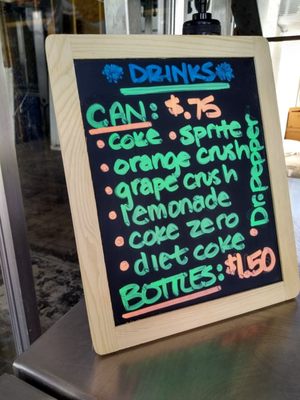 DRINKS
CAN: $.75
• coke • sprite
• orange crush
• grape crush
• lemonade
• coke zero
• diet coke
• Dr. Pepper
BOTTLES: $1.50